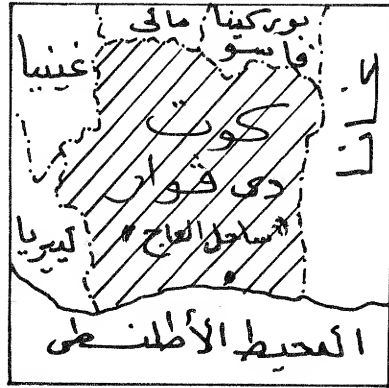 بوركينا
فاسو
مالى
غينيا
غانا
كوت
دى ڤوار
"ساحل العاج"
ليبريا
المحيط الأطلنطى